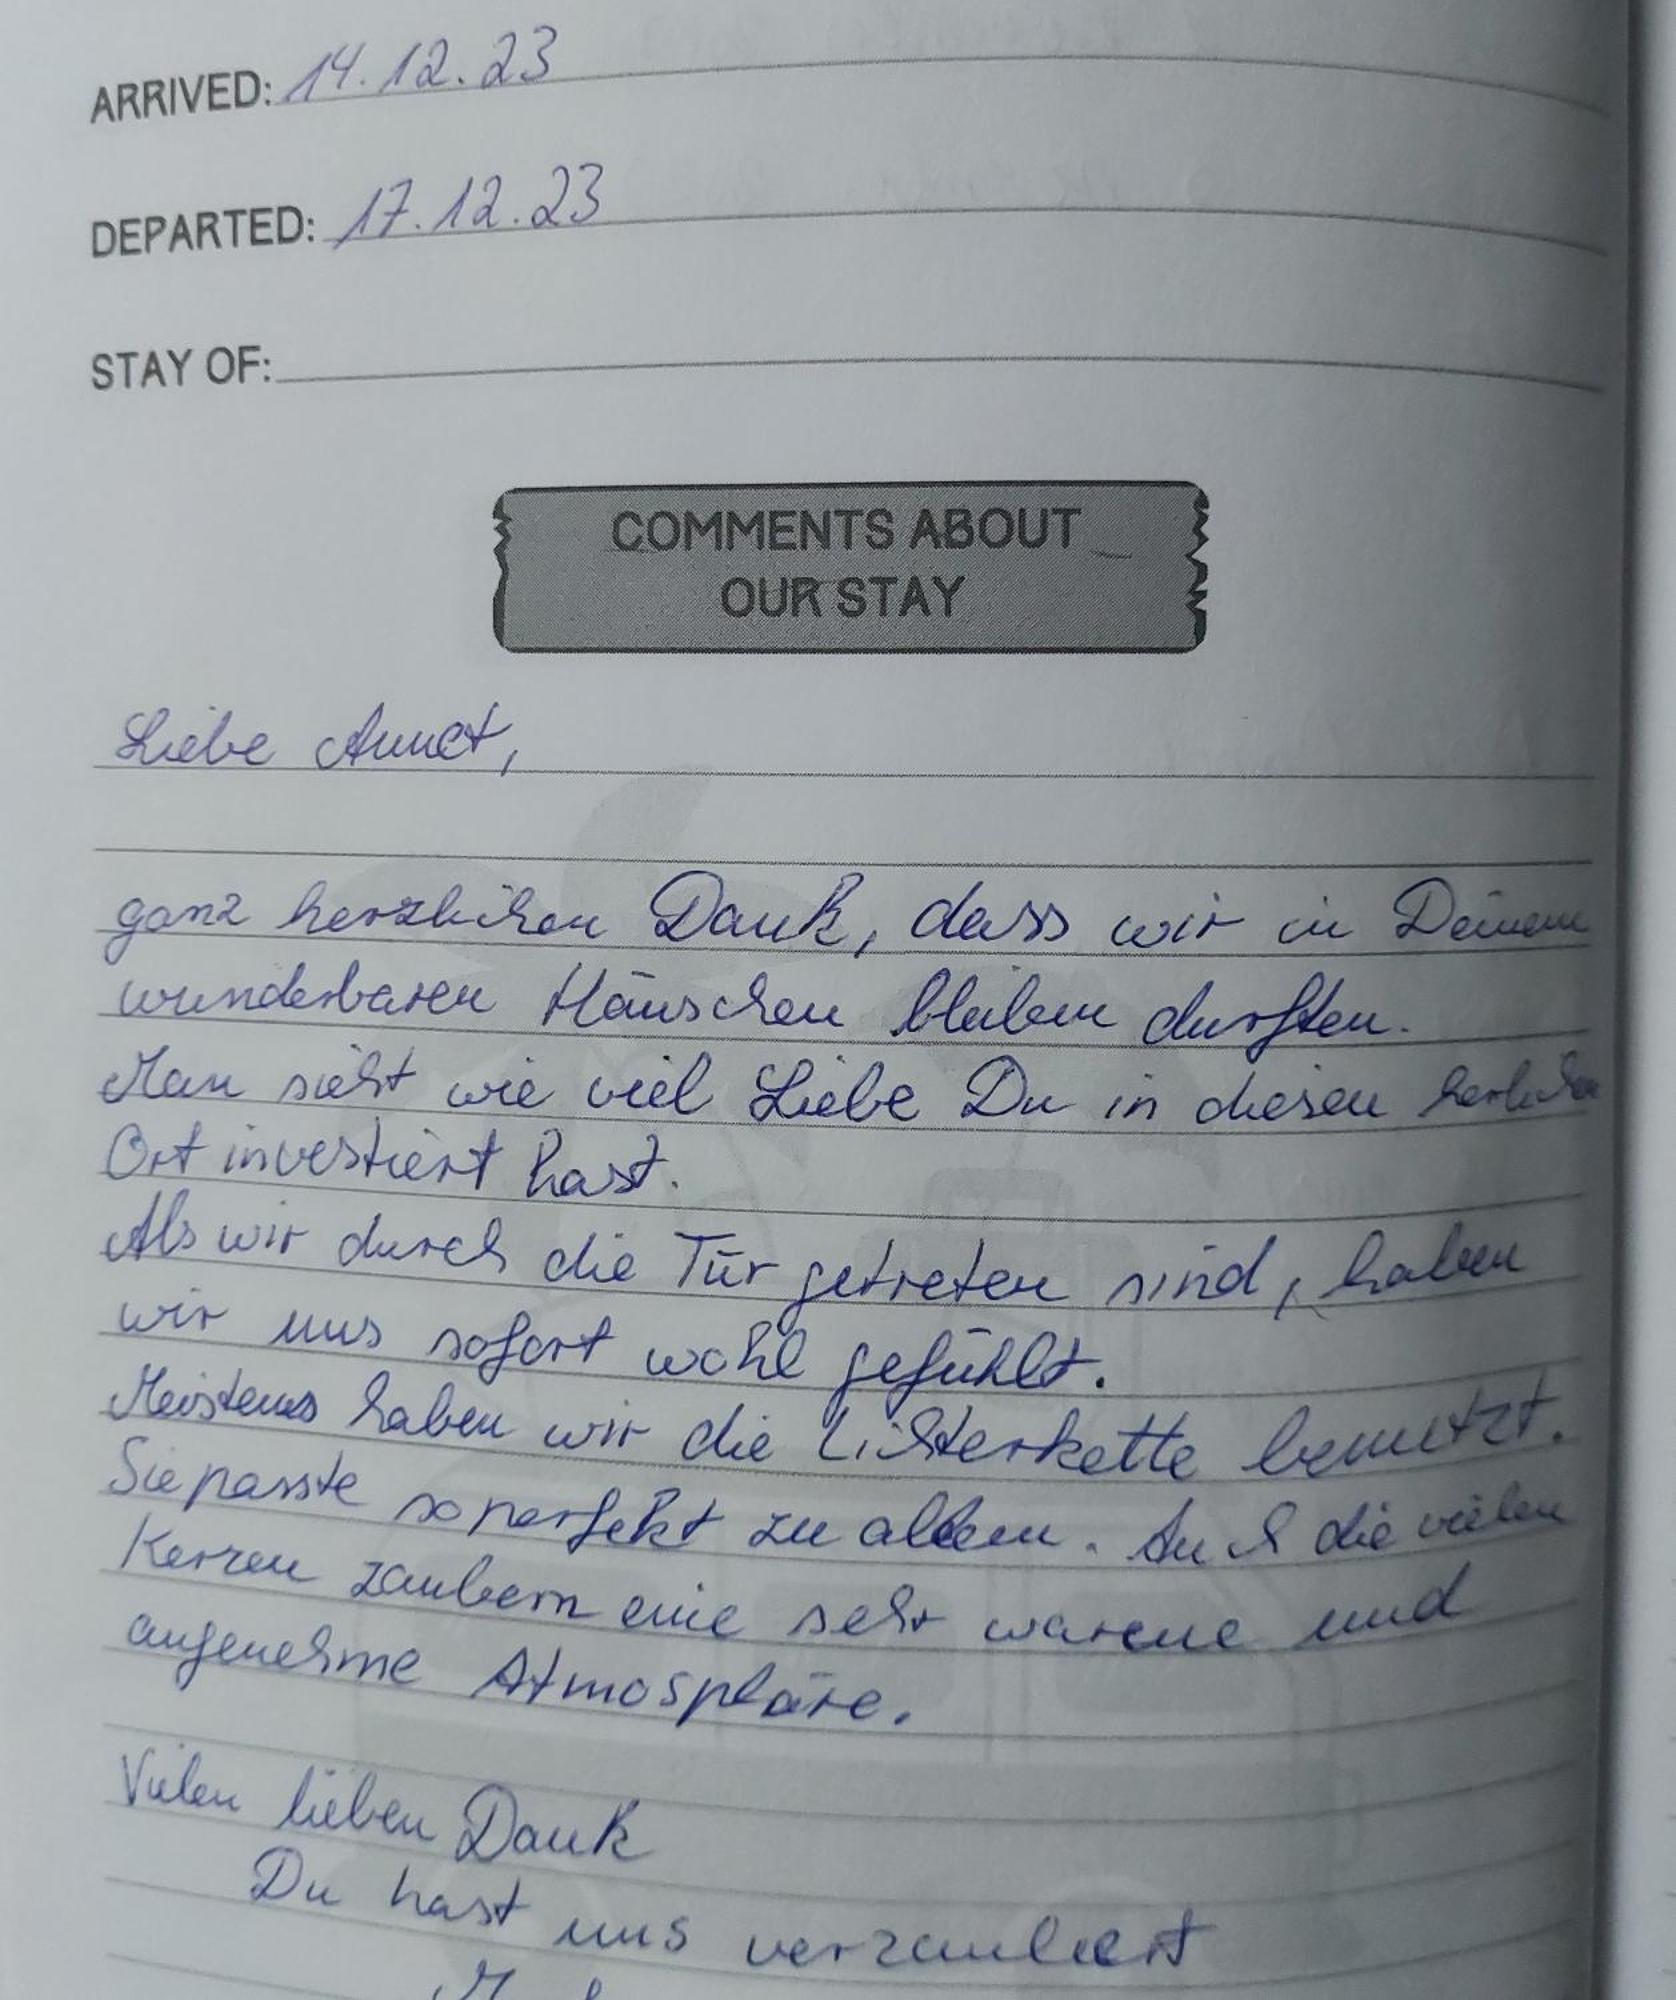 ARRIVED: 14.12.23
DEPARTED: 17.12.23
STAY OF:
COMMENTS ABOUT
OUR STAY
Liebe
ganz herzlichen Dank, dass wir in Deinem
wunderbaren Häuschen bleiben durften.
Man sieht wie viel Liebe Du in diesen
Ort investiert hast.
Als wir durch die Tür getreten sind, haben
wir uns sofort wohl gefühlt.
Meistens haben wir die Lichterkette benutzt.
Sie passte so perfekt zu allem. Auch die vielen
Kerzen zaubern eine sehr warme und
angenehme Atmosphäre.
Vielen lieben Dank
Du hast uns verzaubert